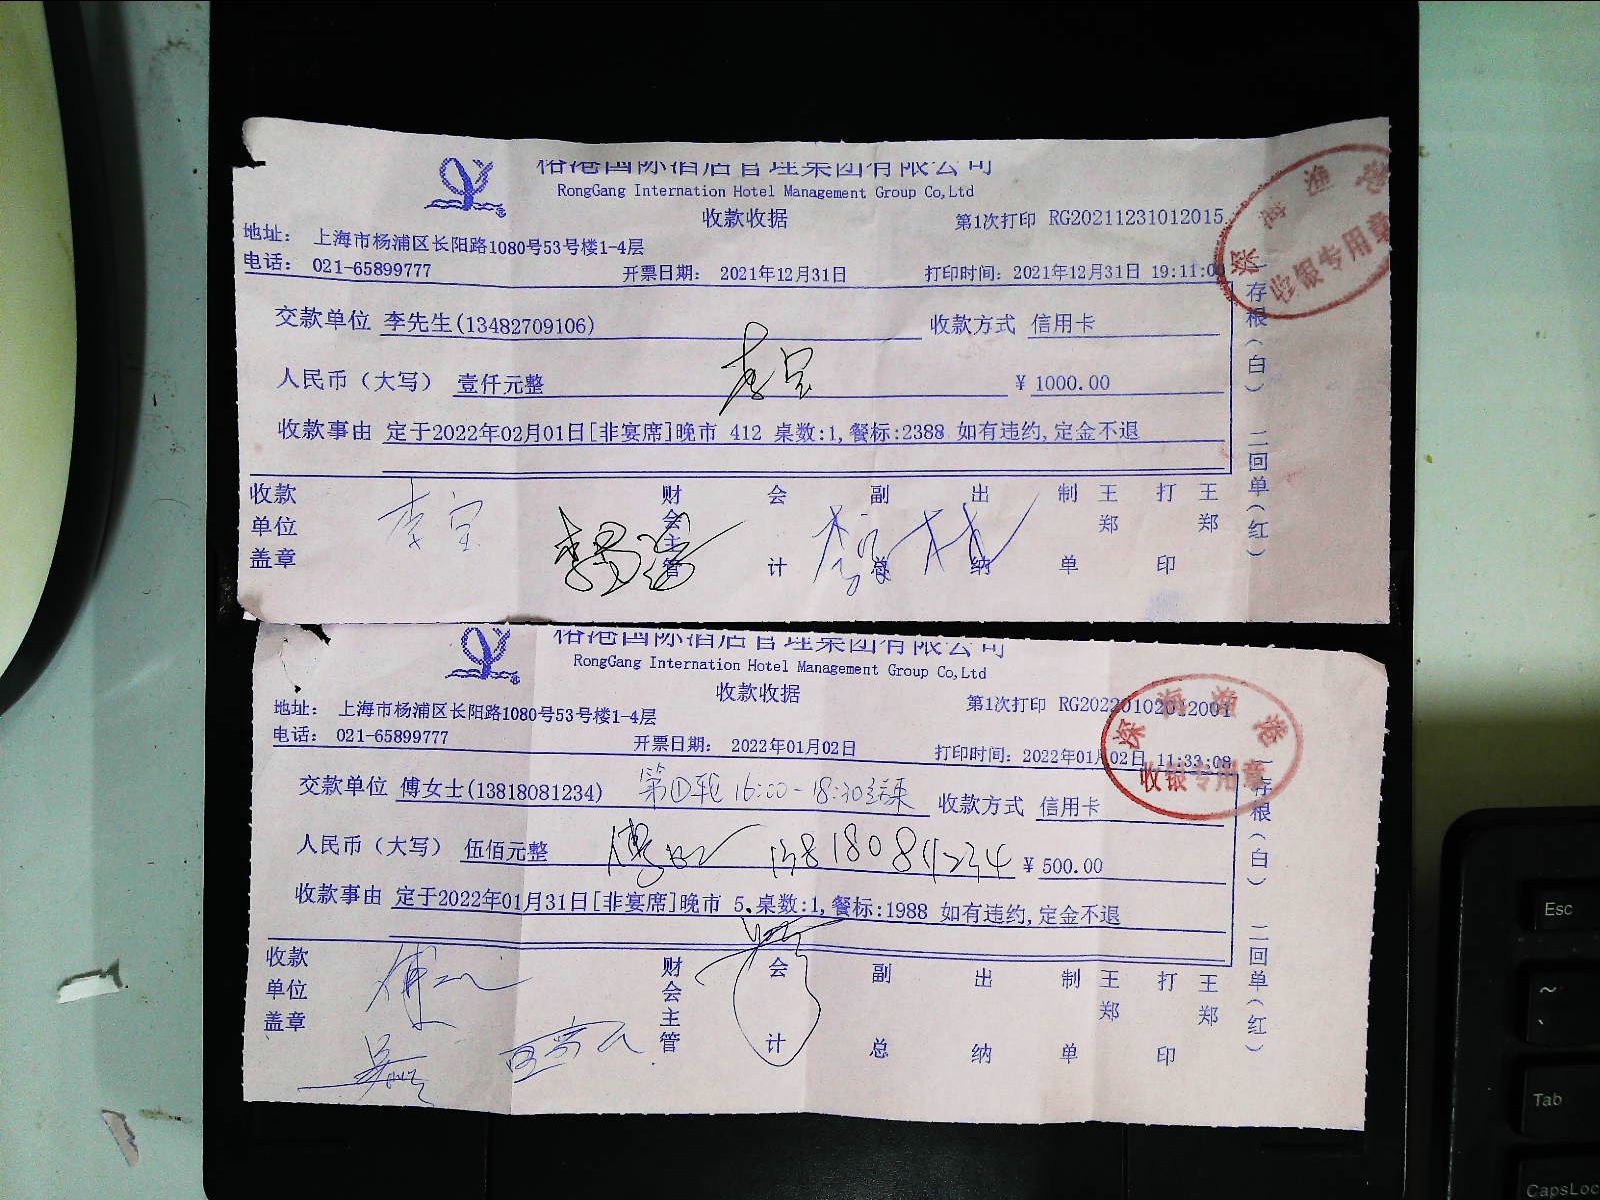 榕港国际酒店管理集团有限公司
RongGang Internation Hotel Management Group Co,Ltd
收款收据
第1次打印 RG20211231012015
地址： 上海市杨浦区长阳路1080号53号楼1-4层
电话： 021-65899777 开票日期： 2021年12月31日 打印时间：2021年12月31日 19:11:00
交款单位 李先生(13482709106) 收款方式 信用卡
人民币（大写） 壹仟元整 ¥ 1000.00
收款事由 定于2022年02月01日[非宴席]晚市 412 桌数:1,餐标:2388 如有违约,定金不退
收款单位盖章 财会主管 会计 副总 出纳 制单 王郑 打印 王郑
存根（白） 二回单（红）
深海渔港
收银专用章
榕港国际酒店管理集团有限公司
RongGang Internation Hotel Management Group Co,Ltd
收款收据
第1次打印 RG20220102012001
地址： 上海市杨浦区长阳路1080号53号楼1-4层
电话： 021-65899777 开票日期： 2022年01月02日 打印时间：2022年01月02日 11:33:08
交款单位 傅女士(13818081234) 第①轮 16:00-18:30结束 收款方式 信用卡
人民币（大写） 伍佰元整 13818081234 ¥ 500.00
收款事由 定于2022年01月31日[非宴席]晚市 5、桌数:1,餐标:1988 如有违约,定金不退
收款单位盖章 财会主管 会计 副总 出纳 制单 王郑 打印 王郑
存根（白） 二回单（红）
深海渔港
收银专用章
Esc
~
Tab
CapsLoc